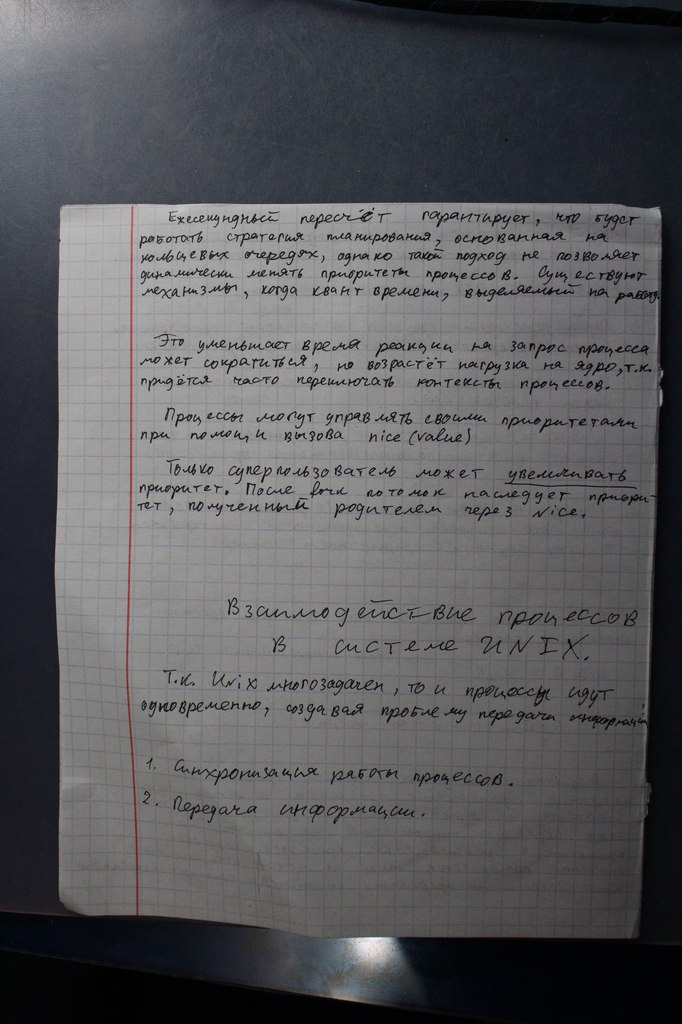 Ежесекундный пересчёт гарантирует, что будет
работать стратегия планирования, основанная на
кольцевых очередях, однако такой подход не позволяет
динамически менять приоритеты процессов. Существуют
механизмы, когда квант времени, выделяемый на работу
Это уменьшает время реакции на запрос процесса
может сократиться, но возрастёт нагрузка на ядро, т.к.
придётся часто переключать контексты процессов.
Процессы могут управлять своими приоритетами
при помощи вызова nice (value)
Только суперпользователь может увеличивать
приоритет. После fork потомок наследует приори-
тет, полученный родителем через Nice.
Взаимодействие процессов
в системе UNIX.
Т.к. Unix многозадачен, то и процессы идут
одновременно, создавая проблему передачи информации
1. Синхронизация работы процессов.
2. Передача информации.